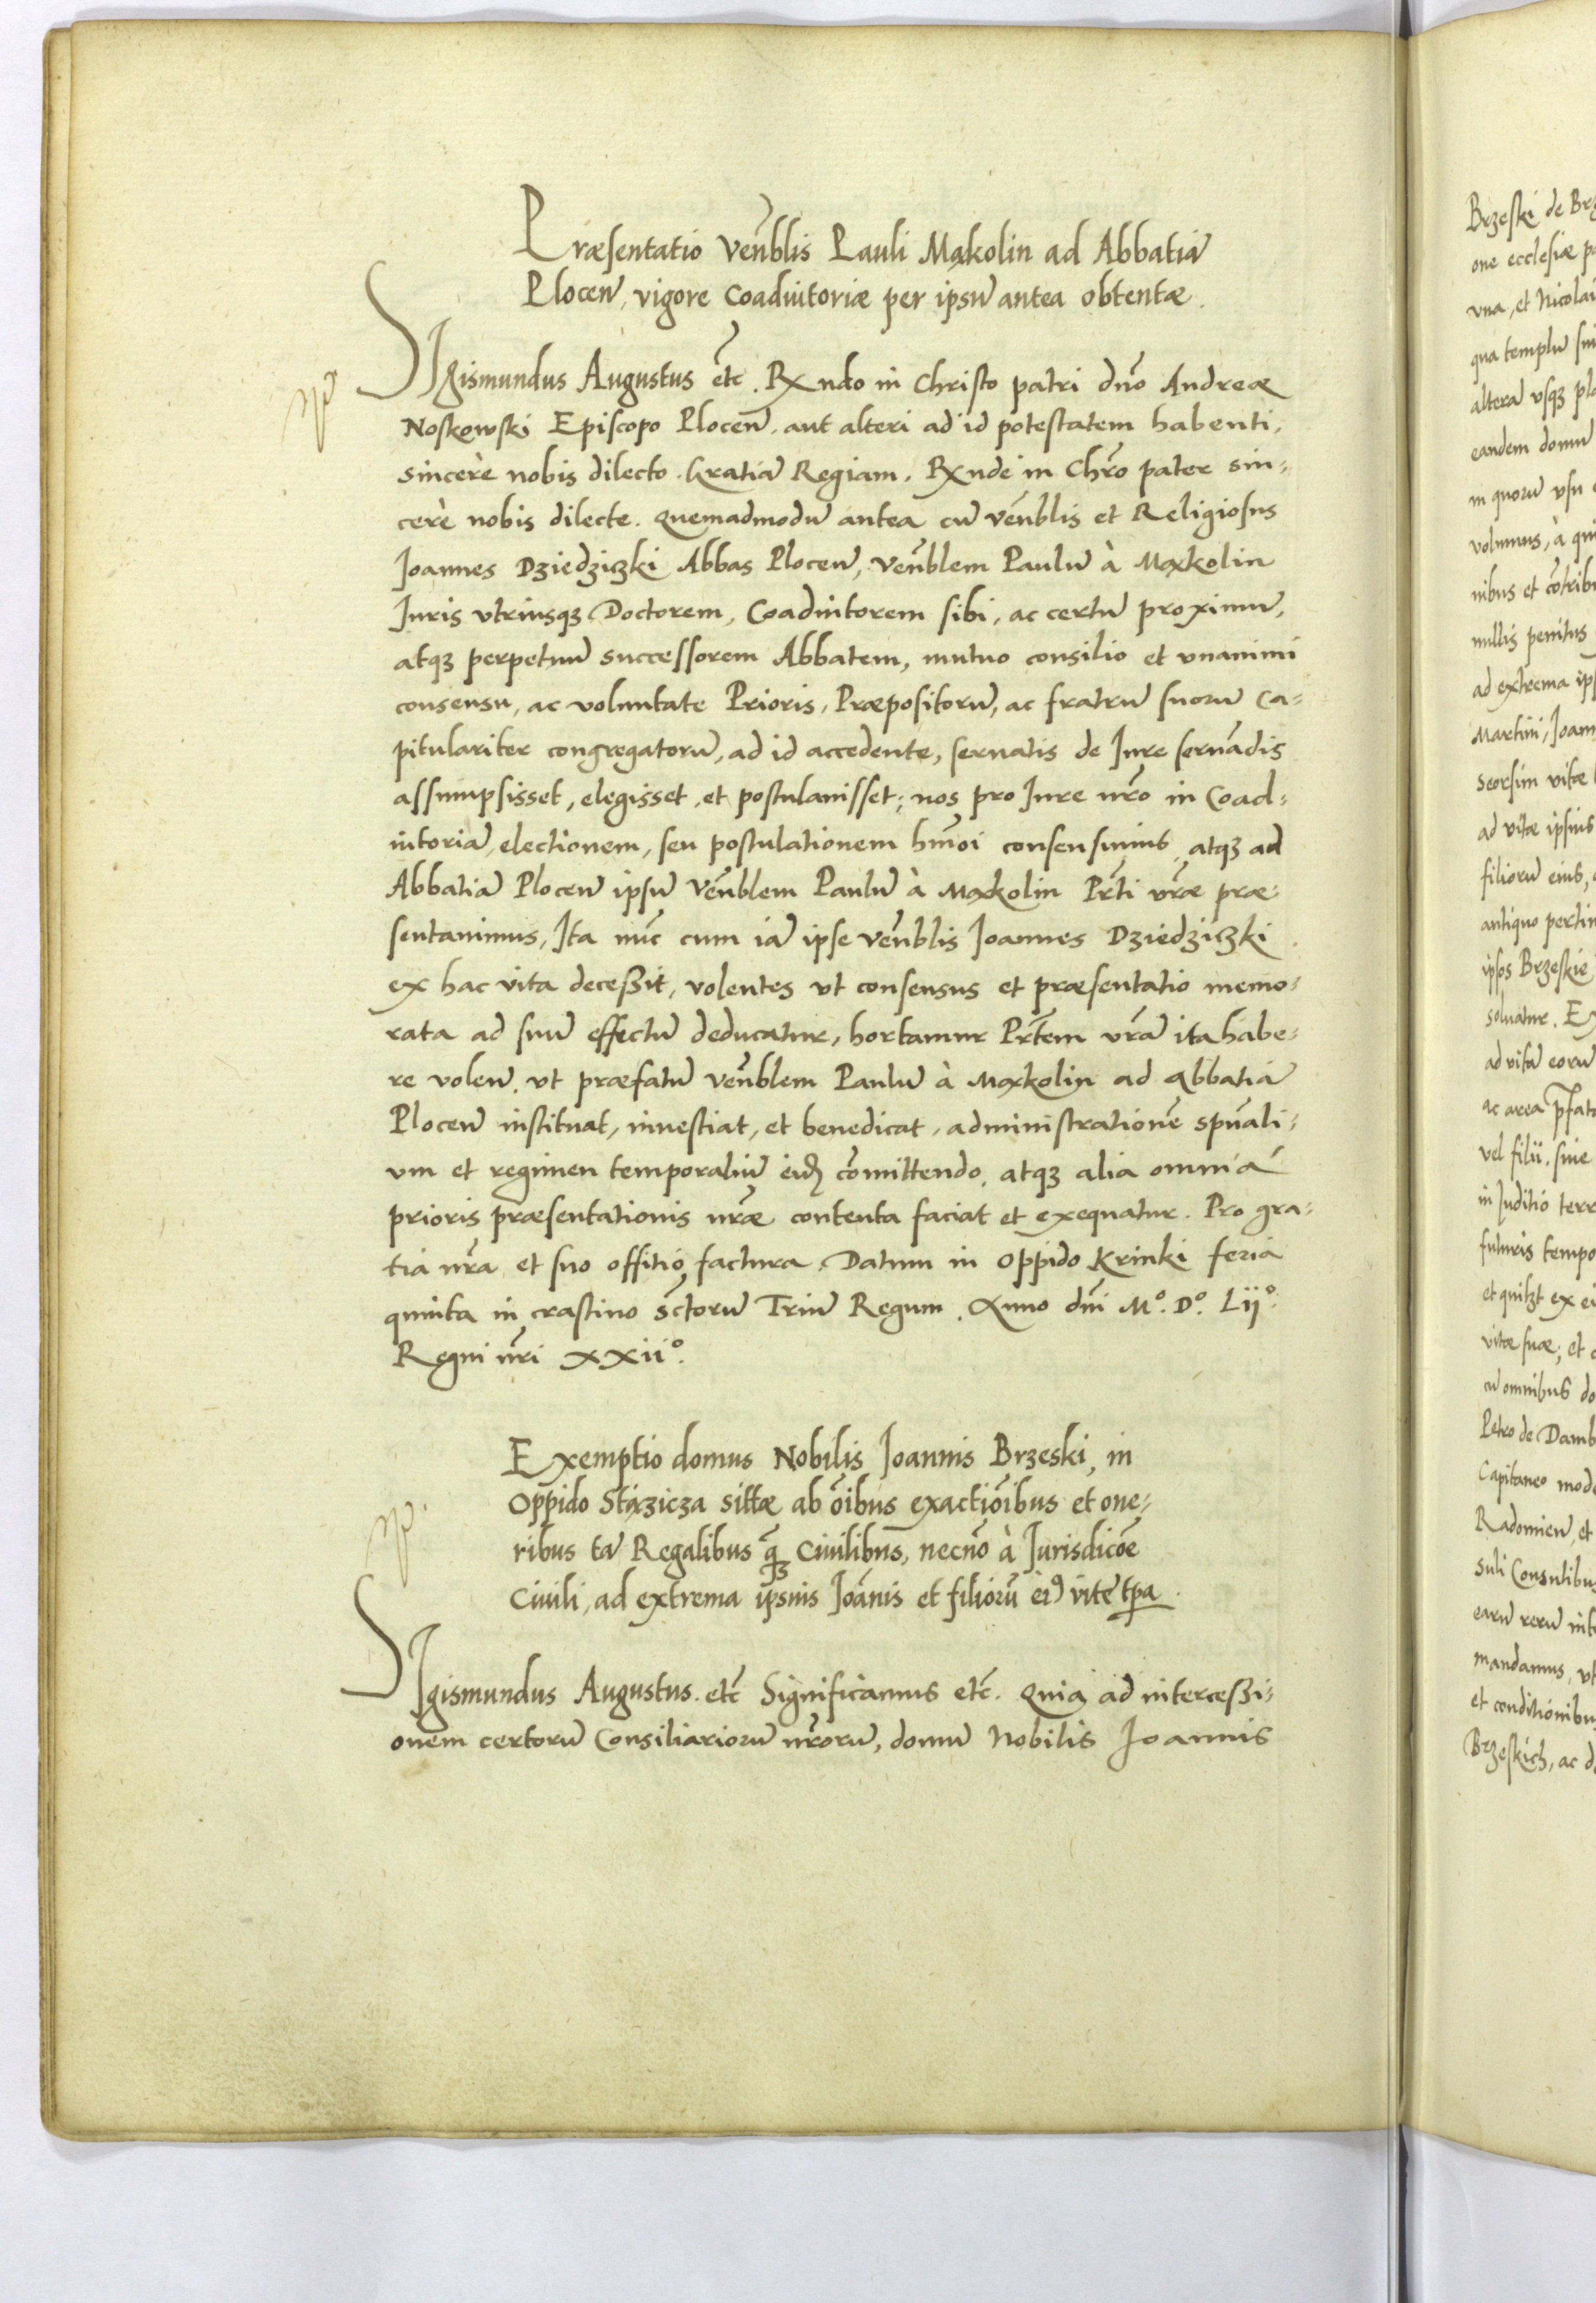 Præsentatio Ven̄blis Pauli Mąkolin ad Abbatiā
Plocen̄, vigore Coadiutoriæ per ipsū antea obtentæ.
SIgismundus Augustus etc̄. Rx̄ndo in Christo patri dn̄o Andreæ
Noskowski Episcopo Plocen̄. aut alteri ad id potestatem habenti,
sincerè nobis dilecto. Gratiā Regiam. Rx̄nde in Chr̄o pater sin-
cerè nobis dilecte. Quemadmodū antea cū ven̄blis et Religiosus
Joannes Dziedziczki Abbas Plocen̄, Ven̄blem Paulū à Mąkolin
Juris vtriusqꝫ Doctorem, Coadiutorem sibi, ac certū proximū,
atqꝫ perpetuū successorem Abbatem, mutuo consilio et vnanimi
consensu, ac voluntate Prioris, Præpositorū, ac fratrū suorū Ca-
pitulariter congregatorū, ad id accedente, seruatis de Jure seruādis
assumpsisset, elegisset, et postulauisset; nos pro Jure nr̄o in Coad-
iutoriā, electionem, seu postulationem hm̄oi consensimus, atqꝫ ad
Abbatiā Plocen̄ ipsū Ven̄blem Paulū à Mąkolin Pr̄ti vr̄æ præ-
sentauimus, Ita nūc cum iā ipse ven̄blis Joannes Dziedziczki
ex hac vita decessit, volentes vt consensus et præsentatio memo-
rata ad suū effectū deducatur, hortamur Pr̄tem vr̄ā ita habe-
re volen̄. vt præfatū ven̄blem Paulū à Mąkolin ad Abbatiā
Plocen̄ instituat, inuestiat, et benedicat, administrationē spūali-
um et regimen temporaliū eidꝫ cōmittendo, atqꝫ alia omnia
prioris præsentationis nr̄æ contenta faciat et exequatur. Pro gra-
tia nr̄a et suo offitio factura. Datum in Oppido Krinki feria
quinta in crastino sc̄torū Triū Regum. Anno dn̄i M°. D°. Lii°.
Regni nr̄i XXii°.
Exemptio domus Nobilis Joannis Brzeski, in
Oppido Stężicza sittæ ab oīb̄us exactiōibus et one-
ribus tā Regalibus q̄ꝫ Ciuilibus, necnō à Jurisdicōe
Ciuili, ad extrema ipsius Joānis et filiorū eiꝰ vite tp̄a.
SIgismundus Augustus. etc̄ Significamus etc̄. Quia ad intercessi-
onem certorū Consiliariorū nr̄orū, domū Nobilis Joannis
Brzeski de
one ecclesiæ
vna, et Nicolai
qua templū
altera vsqꝫ
eandem domū
in quorū vsu
volumus, à
nibus et
nullis penitus
ad extrema
Martini,
seorsim vitæ
ad vitæ ipsius
filiorū eius,
antiquo
ipsos
soluatur.
ad vitā eorū
ac area
vel filii, siue
in Juditio
futuris
et ex
vitæ suæ; et
cū omnibus
Petro de
Capitaneo
Radomien̄, et
earū rerū
mandamus, vt
et
Brzeskich, ac